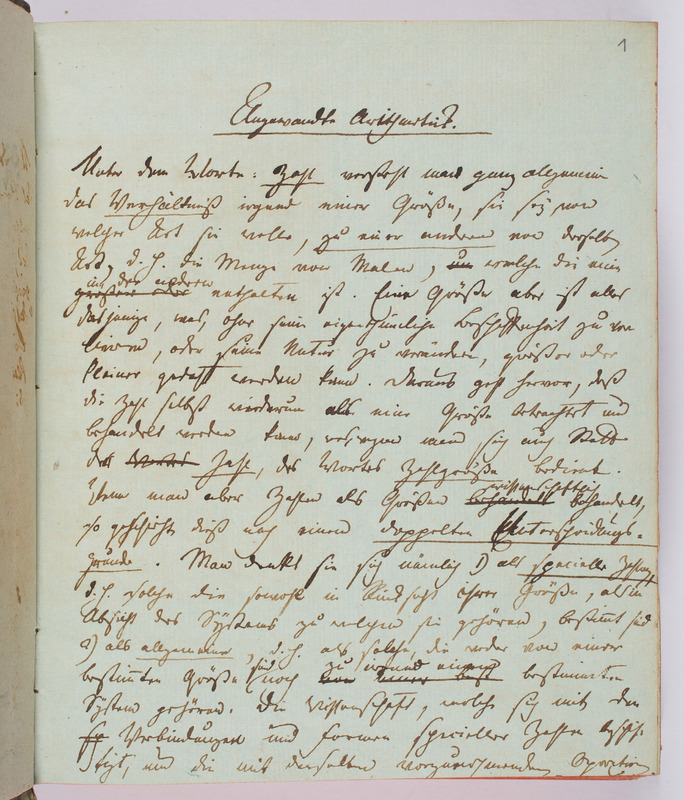 1
Angewandte Arithmetik.
Unter dem Worte: Zahl versteht man ganz allgemein
das Verhältniß irgend einer Größe, sie sey von
welcher Art sie wolle, zu einer andern von derselben
Art, d. h. die Menge von Malen, um welche die eine
in der andern
größern oder enthalten ist. Eine Größe aber ist alles
dasjenige, was, ohne seine eigenthümliche Beschaffenheit zu ver
lieren, oder seine Natur zu verändern, größer oder
kleiner gedacht werden kann. Daraus geht hervor, daß
die Zahl selbst wiederum als eine Größe betrachtet und
behandelt werden kann, weswegen man sich auch statt
des Wortes Zahl, des Wortes Zahlgröße bedient.
wissenschaftlich
Wenn man aber Zahlen als Größen behandelt behandelt,
so geschieht dieß nach einem doppelten Unterscheidungs-
grunde. Man denkt sie sich nämlich 1) als specielle Zahlen
d. h. solche die sowohl in Rücksicht ihrer Größe, als in
Absicht des Systems zu welchem sie gehören, bestimmt sind
2) als allgemeine, d. h. als solche, die weder von einer
bestimten Größe sind noch zu irgend einem bestimmten
System gehören. Die Wissenschaft, welche sich mit den
Verbindungen und Formen specieller Zahlen beschäf-
tigt, und die mit denselben vorzunehmenden Operationen